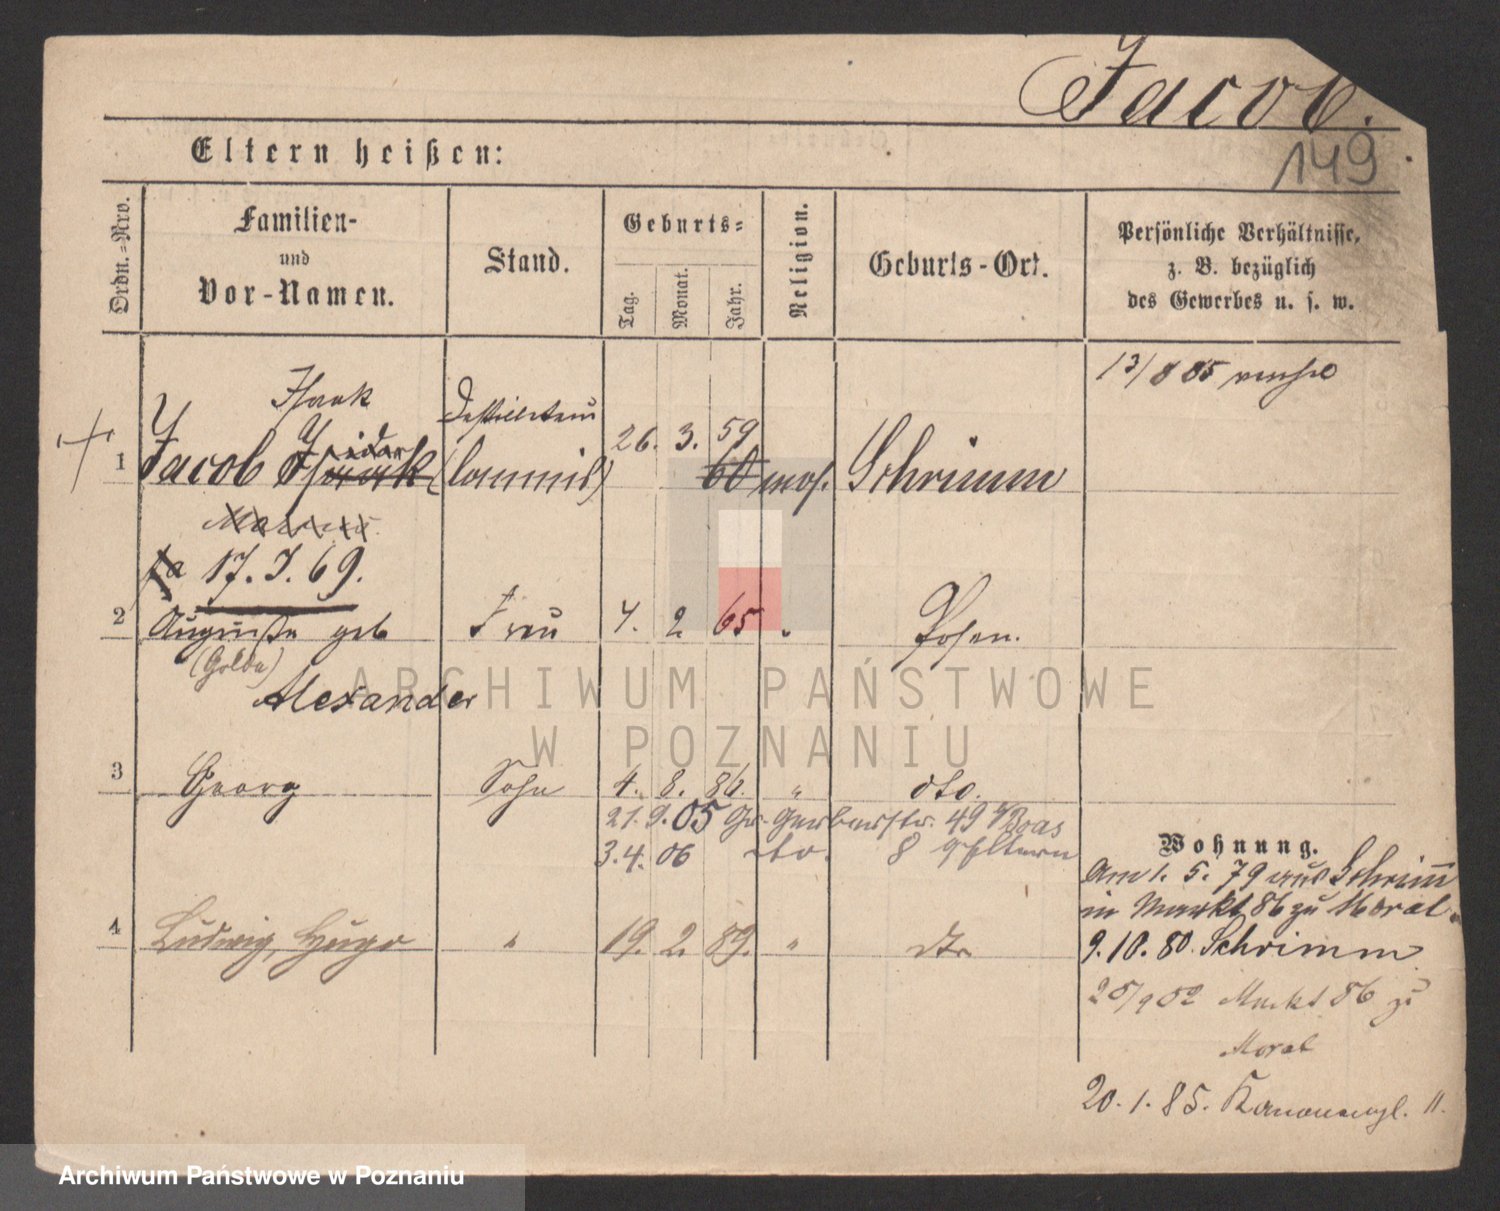 Jacob.
149
Eltern heißen:
Ordn.-Nro.
Familien-
und
Vor-Namen.
Stand.
Geburts-
Tag.
Monat.
Jahr.
Religion.
Geburts-Ort.
Persönliche Verhältnisse,
z. B. bezüglich
des Gewerbes u. s. w.
Isaak
1 Jacob Isidor Isaak (Commis) 26. 3. 59 60 mos. Schrimm
17. 3. 69.
2 Auguste geb Frau 4. 2 65 " Posen.
(Golda)
Alexander
3 Georg Sohn 4. 8. 86. " dto.
21. 9. 05 Gr. Gerberstr. 49
3. 4. 06 dto. 8 Eltern
4 Ludwig, Hugo " 19. 2 89. " dto
Wohnung.
Am 1. 5. 79 aus Schrimm
in Markt 86 zu Moral.
9. 10. 80. Schrimm
25/9 82 Markt 86 zu
Moral
20. 1. 85. Kanonenpl. 11.
ARCHIWUM PAŃSTWOWE
W POZNANIU
Archiwum Państwowe w Poznaniu